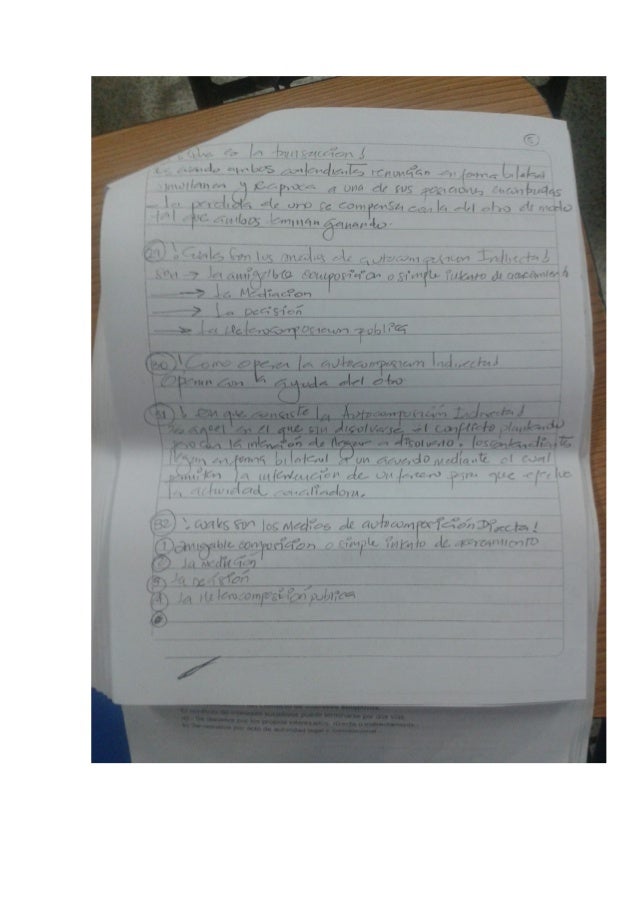 5
que es la transaccion!
es cuando ambos contendientes renuncian en forma bilateral
simultanea y reciproca a una de sus posiciones encontradas
- la perdida de uno se compensa con la del otro de modo
tal que ambos terminan ganando.
29 ! Cuales son los medios de autocomposicion Indirecta!
son → la amigable composicion o simple intento de acercamiento
→ La Mediacion
→ La Decisión
→ La Heterocomposicion publica
30 ! Como opera la autocomposicion Indirecta!
Operan con la ayuda del otro
31 ! en que consiste la Autocomposición Indirecta!
es aquel en el que sin disolverse el conflicto planteado
pero con la intención de llegar a disolverlo. los contendientes
llegan en forma bilateral a un acuerdo mediante el cual
permiten la intervencion de un tercero para que efectue
la actividad conciliadora.
32 ! Cuales son los Medios de autocomposición Directa!
1 amigable composición o simple intento de acercamiento
2 la mediación
3 la Decisión
4 la Heterocomposición publica
pueden terminarse por dos vías.
a) - Se disuelve por los propios interesados, directa o indirectamente.
b) Se resuelve por acto de autoridad legal y convencional